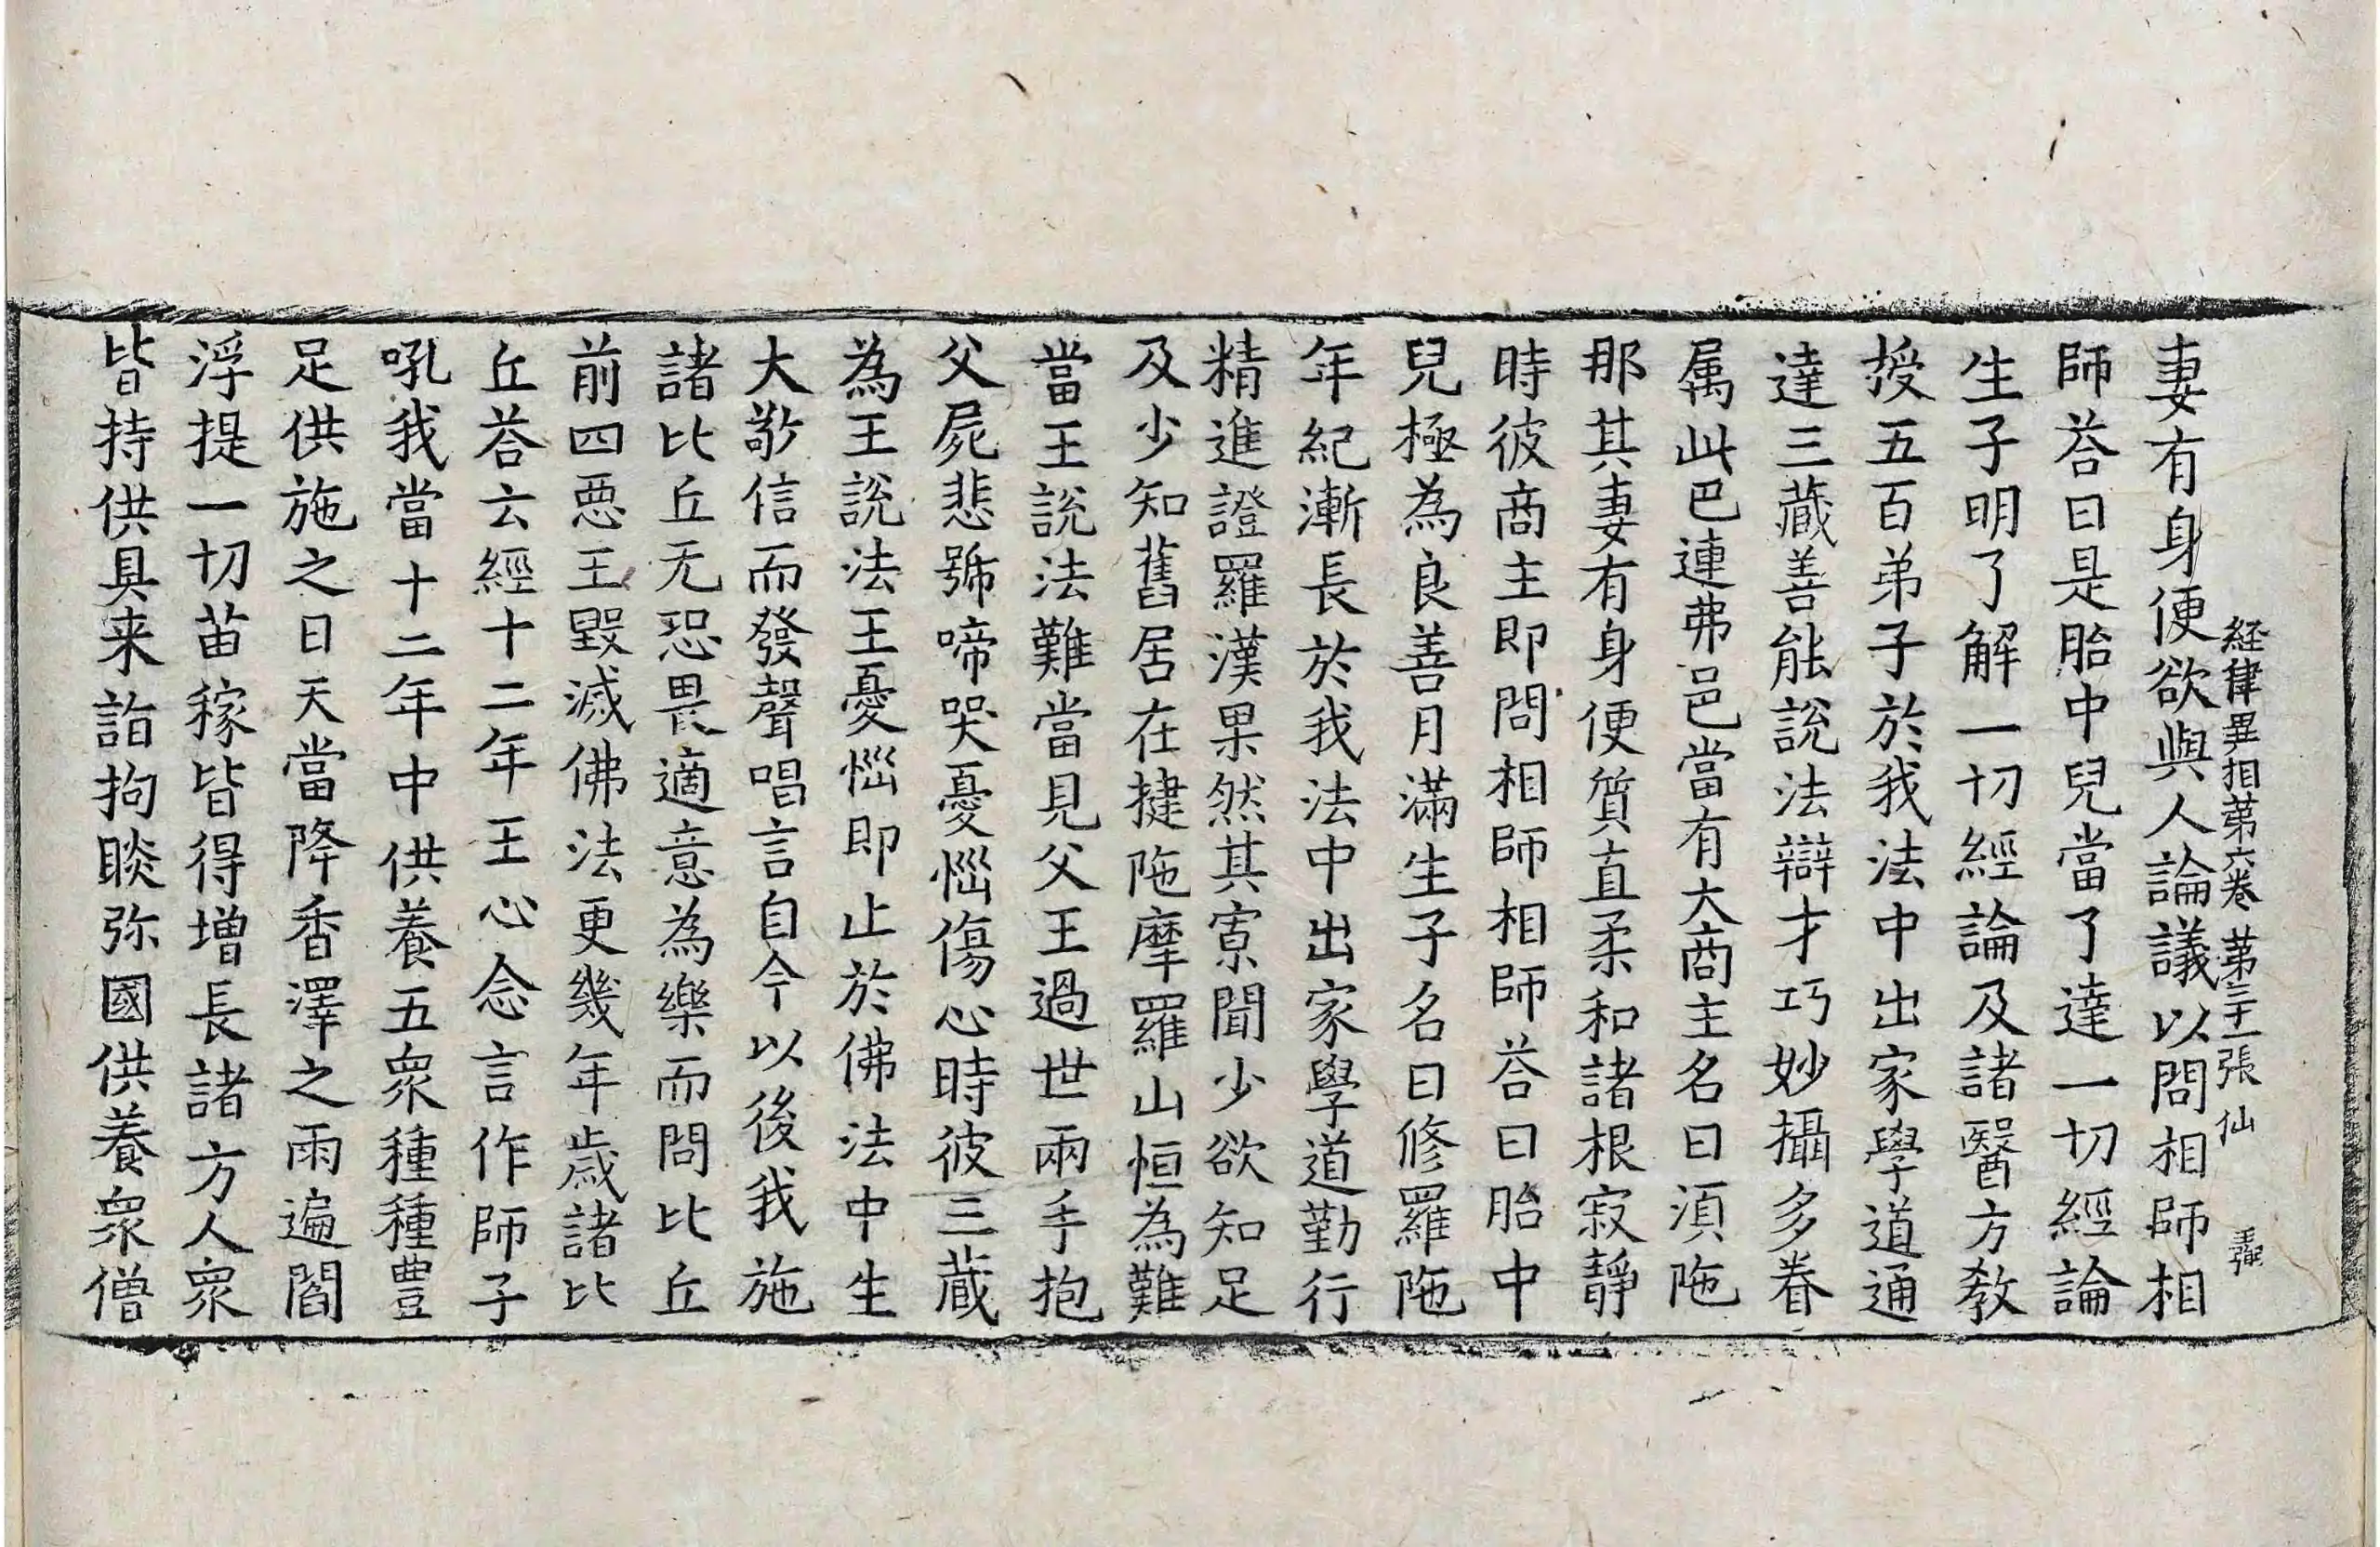 経律異相苐六卷 苐三十一張 仙
妻有身便欲與人論議以問相師相
師荅曰是胎中兒當了達一切經論
生子明了解一切經論及諸醫方教
授五百弟子於我法中出家學道通
達三藏善能說法辯才巧妙攝多眷
属此巴連弗邑當有大商主名曰湏陁
那其妻有身便質直柔和諸根寂靜
時彼商主即問相師相師荅曰胎中
兒極為良善月滿生子名曰修羅陁
年紀漸長於我法中出家學道勤行
精進證羅漢果然其寡聞少欲知足
及少知舊居在揵陁摩羅山恒為難
當王說法難當見父王過世兩手抱
父屍悲號啼哭憂惱傷心時彼三藏
為王說法王憂惱即止於佛法中生
大敬信而發聲唱言自今以後我施
諸比丘无恐畏適意為樂而問比丘
前四惡王毀滅佛法更幾年歲諸比
丘荅云經十二年王心念言作師子
吼我當十二年中供養五衆種種豊
足供施之日天當降香澤之雨遍閻
浮提一切苗稼皆得增長諸方人衆
皆持供具来詣拘睒弥國供養衆僧